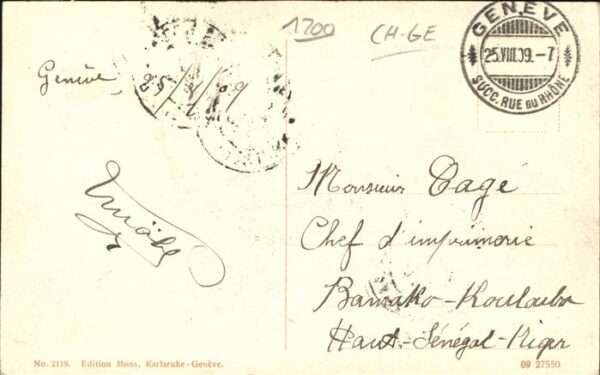 1200
CH-GE
GENÈVE
25.VIII.09.-7
SUCC. RUE DU RHÔNE
Genève,
Monsieur Dagé
Chef d'imprimerie
Bamako-Koulouba
Haut-Sénégal-Niger
No. 2119. Edition Mons, Karlsruhe-Genève.
09 27550